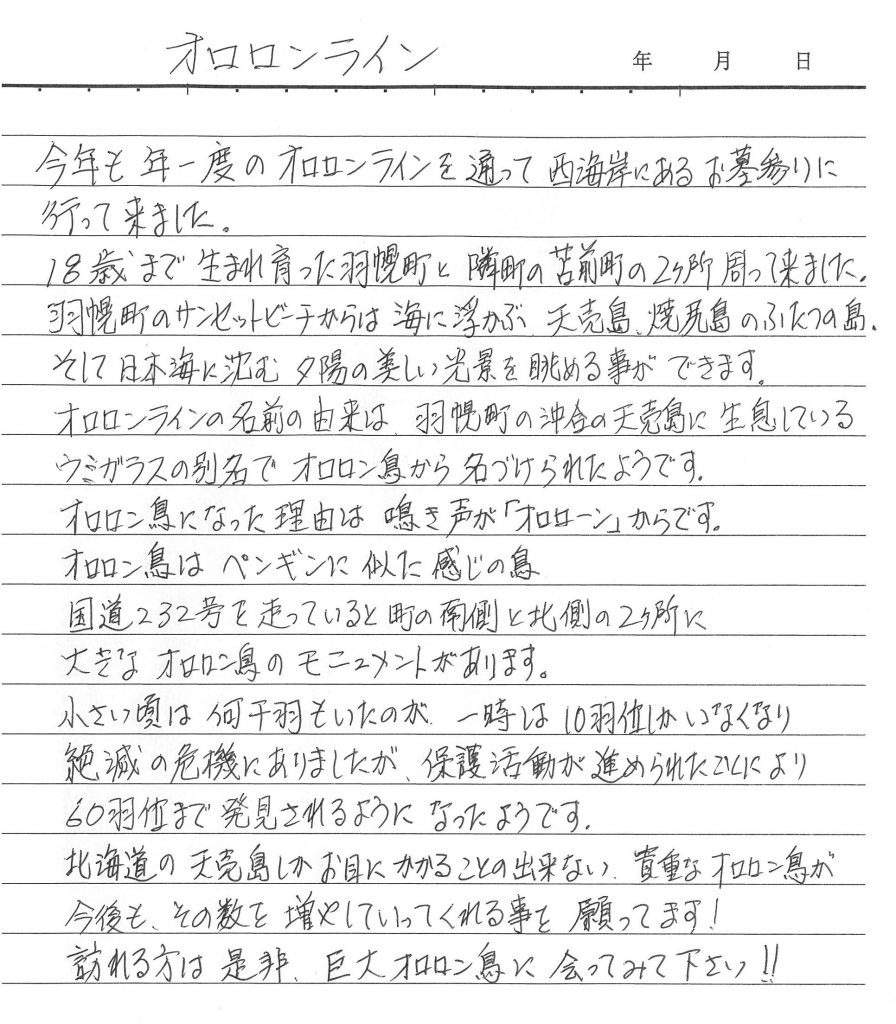 オロロンライン
年 月 日
今年も年一度のオロロンラインを通って西海岸にあるお墓参りに
行って来ました。
18歳まで生まれ育った羽幌町と隣町の苫前町の2ヶ所周って来ました。
羽幌町のサンセットビーチからは海に浮かぶ、天売島、焼尻島のふたつの島。
そして日本海に沈む夕陽の美しい光景を眺める事ができます。
オロロンラインの名前の由来は、羽幌町の沖合の天売島に生息している
ウミガラスの別名でオロロン鳥から名づけられたようです。
オロロン鳥になった理由は鳴き声が「オロローン」からです。
オロロン鳥はペンギンに似た感じの鳥
国道232号を走っていると町の南側と北側の2ヶ所に
大きなオロロン鳥のモニュメントがあります。
小さい頃は何千羽もいたのが、一時は10羽位しかいなくなり
絶滅の危機にありましたが、保護活動が進められたことにより
60羽位まで発見されるようになったようです。
北海道の天売島しかお目にかかることの出来ない、貴重なオロロン鳥が
今後も、その数を増やしていってくれる事を願ってます!
訪れる方は是非、巨大オロロン鳥に会ってみて下さい!!